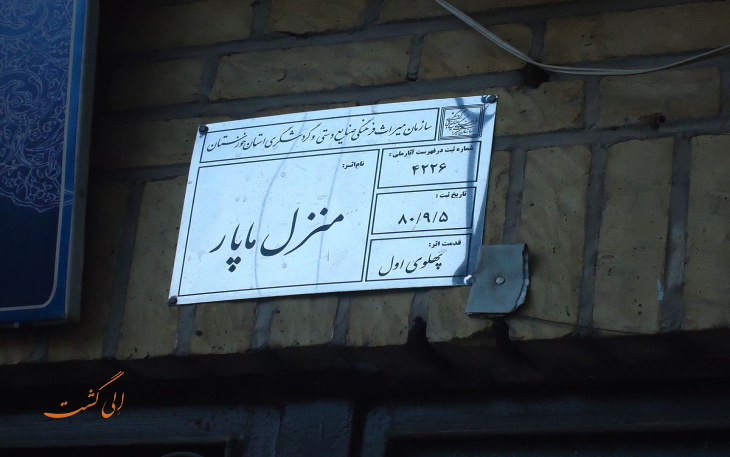 سازمان میراث فرهنگی صنایع دستی و گردشگری استان خوزستان
نام اثر:
منزل ماپار
شماره ثبت در فهرست آثار ملی:
۴۲۲۶
تاریخ ثبت:
۸۰/۹/۵
قدمت اثر:
پهلوی اول
الی گشت